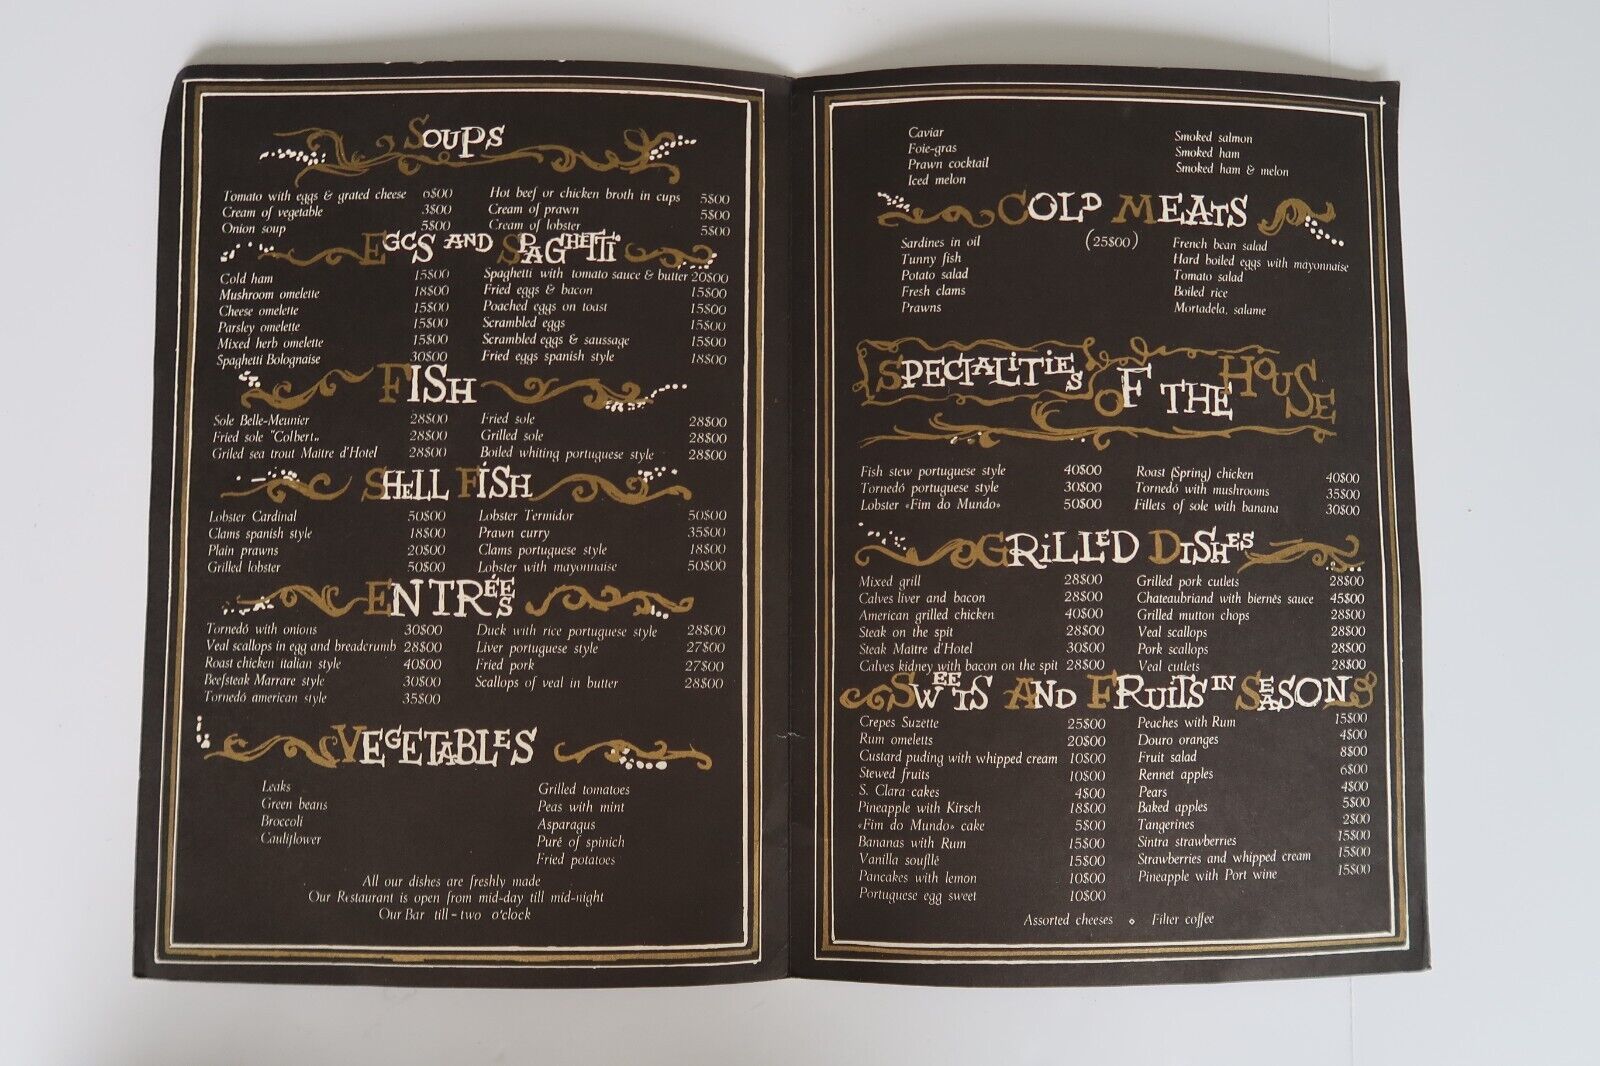 SOUPS
Tomato with eggs & grated cheese 6$00
Cream of vegetable 3$00
Onion soup 5$00
Hot beef or chicken broth in cups 5$00
Cream of prawn 5$00
Cream of lobster 5$00
EGGS AND SPAGHETTI
Cold ham 15$00
Mushroom omelette 18$00
Cheese omelette 15$00
Parsley omelette 15$00
Mixed herb omelette 15$00
Spaghetti Bolognaise 30$00
Spaghetti with tomato sauce & butter 20$00
Fried eggs & bacon 15$00
Poached eggs on toast 15$00
Scrambled eggs 15$00
Scrambled eggs & saussage 15$00
Fried eggs spanish style 18$00
FISH
Sole Belle-Meunier 28$00
Fried sole "Colbert" 28$00
Griled sea trout Maitre d'Hotel 28$00
Fried sole 28$00
Grilled sole 28$00
Boiled whiting portuguese style 28$00
SHELL FISH
Lobster Cardinal 50$00
Clams spanish style 18$00
Plain prawns 20$00
Grilled lobster 50$00
Lobster Termidor 50$00
Prawn curry 35$00
Clams portuguese style 18$00
Lobster with mayonnaise 50$00
ENTRÉES
Tornedó with onions 30$00
Veal scallops in egg and breadcrumb 28$00
Roast chicken italian style 40$00
Beefsteak Marrare style 30$00
Tornedó american style 35$00
Duck with rice portuguese style 28$00
Liver portuguese style 27$00
Fried pork 27$00
Scallops of veal in butter 28$00
VEGETABLES
Leaks
Green beans
Broccoli
Cauliflower
Grilled tomatoes
Peas with mint
Asparagus
Puré of spinich
Fried potatoes
All our dishes are freshly made
Our Restaurant is open from mid-day till mid-night
Our Bar till-two o'clock
Caviar
Foie-gras
Prawn cocktail
Iced melon
Smoked salmon
Smoked ham
Smoked ham & melon
COLD MEATS
(25$00)
Sardines in oil
Tunny fish
Potato salad
Fresh clams
Prawns
French bean salad
Hard boiled eggs with mayonnaise
Tomato salad
Boiled rice
Mortadela, salame
SPECIALITIES OF THE HOUSE
Fish stew portuguese style 40$00
Tornedó portuguese style 30$00
Lobster «Fim do Mundo» 50$00
Roast (Spring) chicken 40$00
Tornedó with mushrooms 35$00
Fillets of sole with banana 30$00
GRILLED DISHES
Mixed grill 28$00
Calves liver and bacon 28$00
American grilled chicken 40$00
Steak on the spit 28$00
Steak Maitre d'Hotel 30$00
Calves kidney with bacon on the spit 28$00
Grilled pork cutlets 28$00
Chateaubriand with biernès sauce 45$00
Grilled mutton chops 28$00
Veal scallops 28$00
Pork scallops 28$00
Veal cutlets 28$00
SWEETS AND FRUITS IN SEASON
Crepes Suzette 25$00
Rum omeletts 20$00
Custard puding with whipped cream 10$00
Stewed fruits 10$00
S. Clara cakes 4$00
Pineapple with Kirsch 18$00
«Fim do Mundo» cake 5$00
Bananas with Rum 15$00
Vanilla soufllé 15$00
Pancakes with lemon 10$00
Portuguese egg sweet 10$00
Peaches with Rum 15$00
Douro oranges 4$00
Fruit salad 8$00
Rennet apples 6$00
Pears 4$00
Baked apples 5$00
Tangerines 2$00
Sintra strawberries 15$00
Strawberries and whipped cream 15$00
Pineapple with Port wine 15$00
Assorted cheeses ⋄ Filter coffee